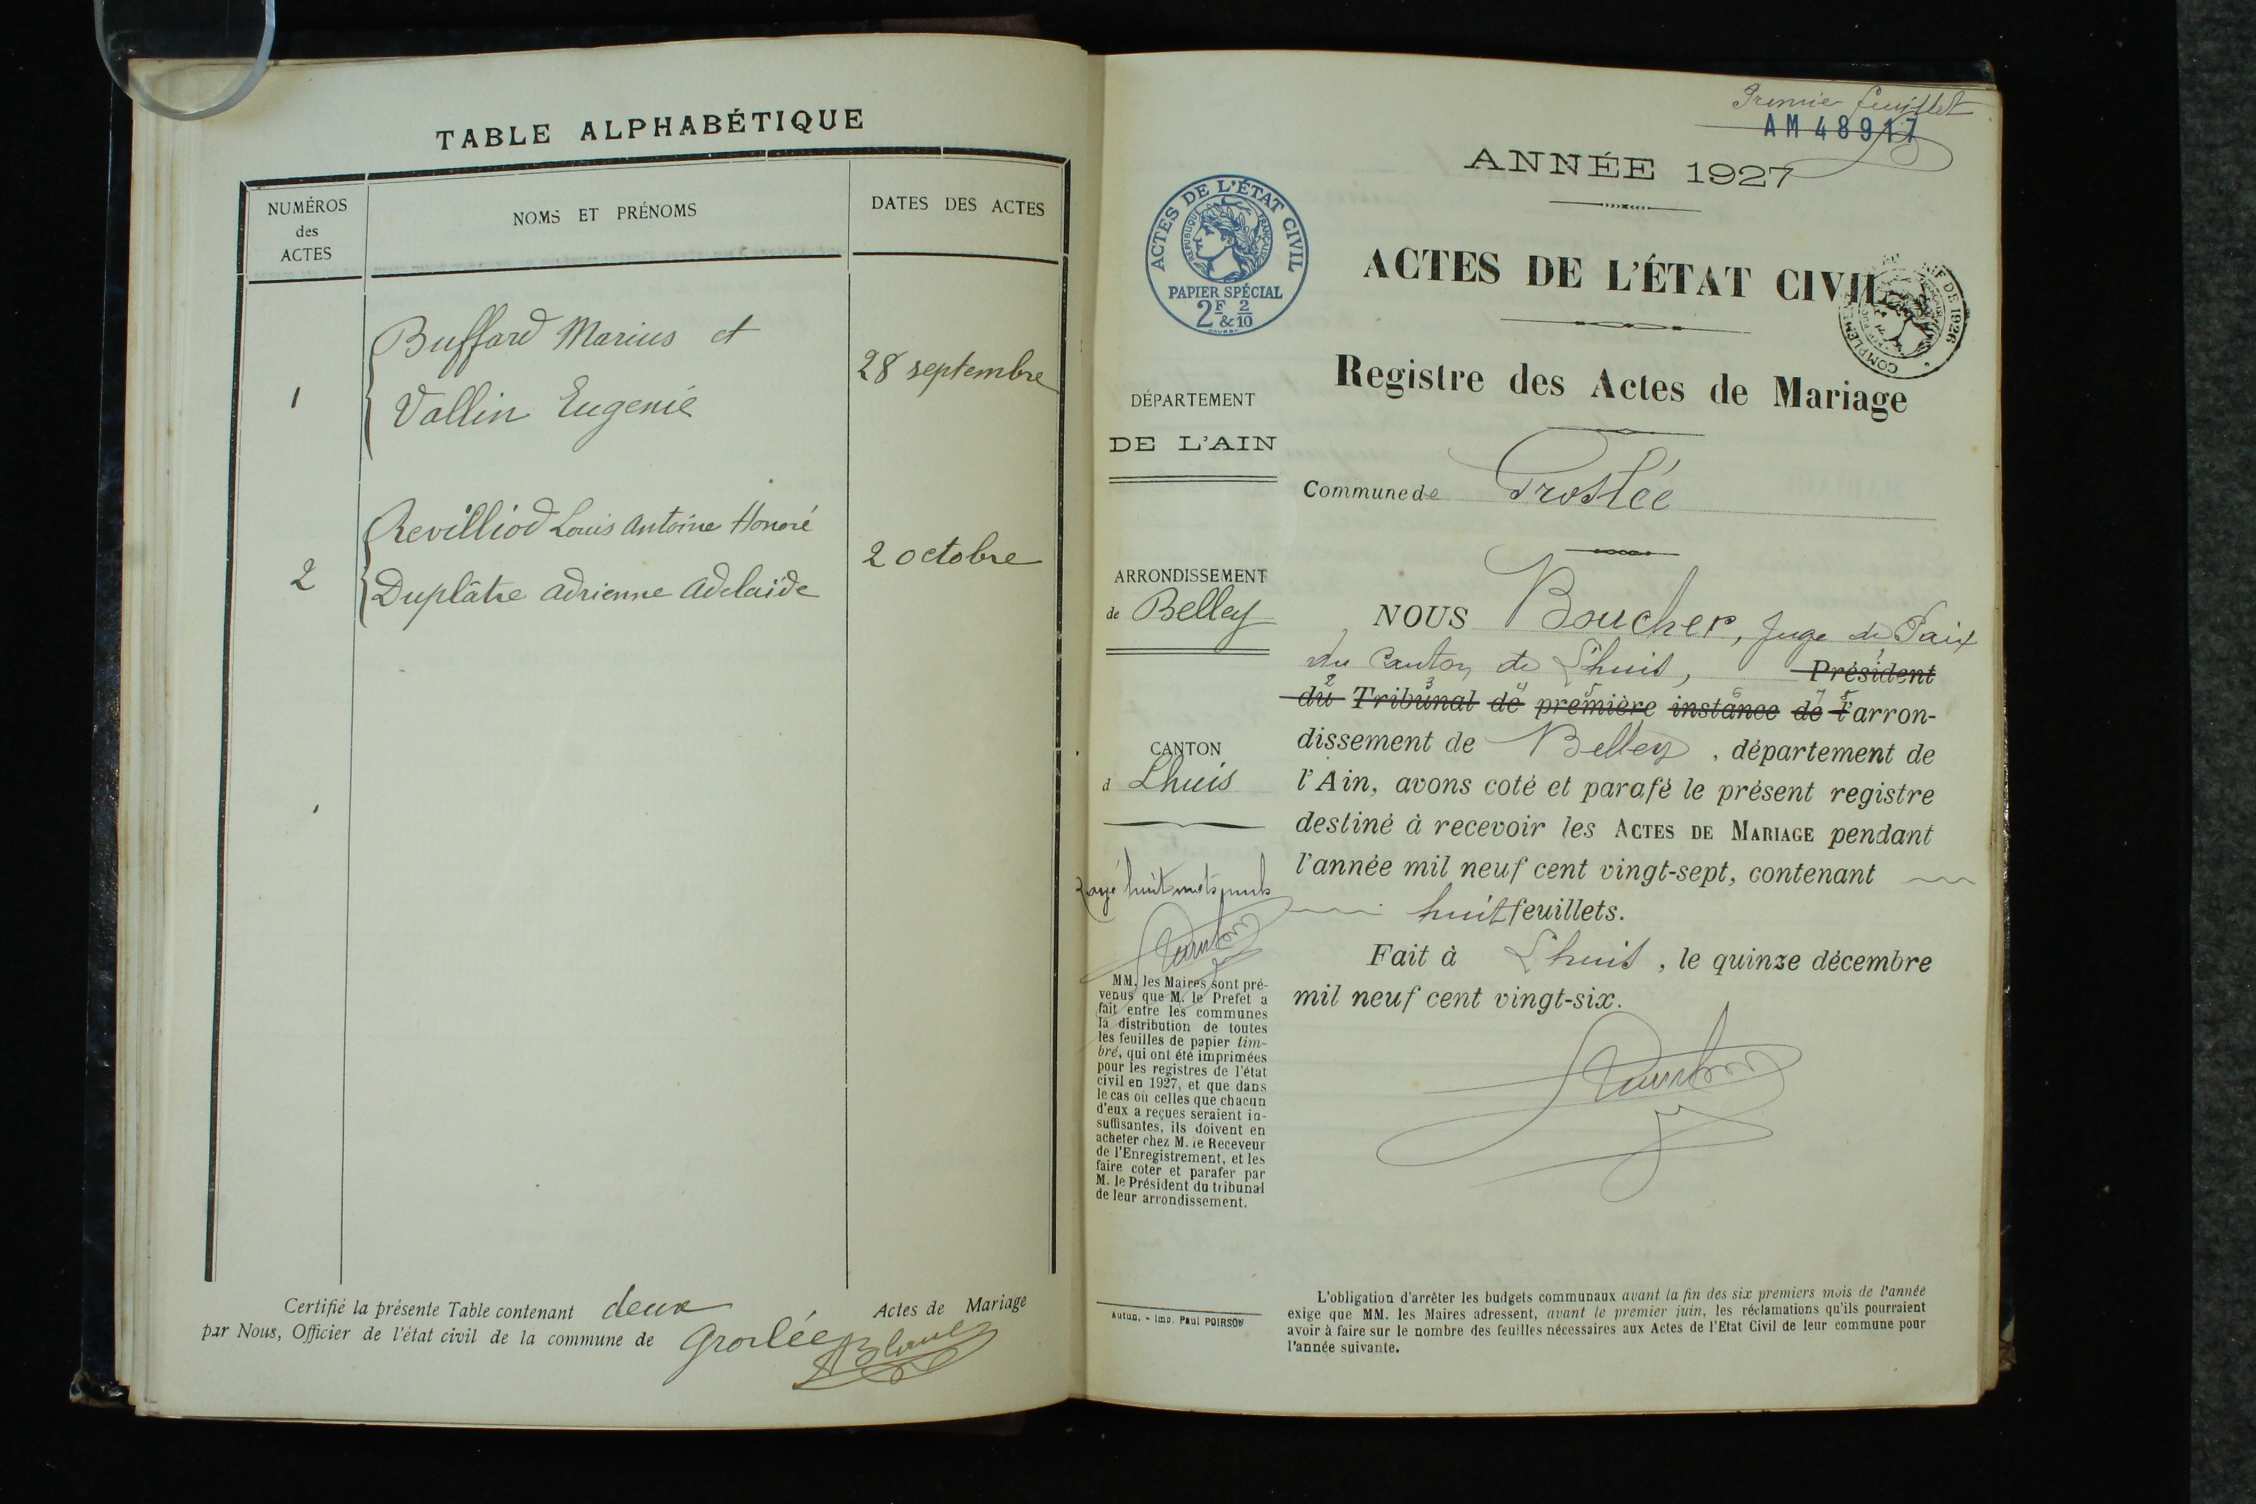 TABLE ALPHABÉTIQUE
NUMÉROS
des
ACTES
NOMS ET PRÉNOMS
DATES DES ACTES
Buffard Marius et
1
Vallin Eugenie
28 septembre
Revilliod Louis Antoine Honoré
2
Duplâtre Adrienne Adelaïde
2 octobre
Certifié la présente Table contenant deux Actes de Mariage
par Nous, Officier de l'état civil de la commune de Groslée
Premier feuillet
AM 48917
ANNÉE 1927
ACTES DE L'ÉTAT CIVIL
RÉPUBLIQUE FRANÇAISE
PAPIER SPÉCIAL
2F & 2/10
ACTES DE L'ÉTAT CIVIL
Registre des Actes de Mariage
DÉPARTEMENT
DE L'AIN
Commune de Groslée
ARRONDISSEMENT
de Belley
CANTON
d Lhuis
Rayé huit mots nuls
MM. les Maires sont pré-
venus que M. le Préfet a
fait entre les communes
la distribution de toutes
les feuilles de papier tim-
bré, qui ont été imprimées
pour les registres de l'état
civil en 1927, et que dans
le cas où celles que chacun
d'eux a reçues seraient in-
suffisantes, ils doivent en
acheter chez M. le Receveur
de l'Enregistrement, et les
faire coter et parafer par
M. le Président du tribunal
de leur arrondissement.
Autun. - Imp. Paul POIRSON
NOUS Boucher, Juge de Paix
du Canton de Lhuis, Président
du Tribunal de première instance de l'arron-
dissement de Belley, département de
l'Ain, avons coté et parafé le présent registre
destiné à recevoir les ACTES DE MARIAGE pendant
l'année mil neuf cent vingt-sept, contenant
huit feuillets.
Fait à Lhuis, le quinze décembre
mil neuf cent vingt-six.
L'obligation d'arrêter les budgets communaux avant la fin des six premiers mois de l'année
exige que MM. les Maires adressent, avant le premier juin, les réclamations qu'ils pourraient
avoir à faire sur le nombre des feuilles nécessaires aux Actes de l'Etat Civil de leur commune pour
l'année suivante.